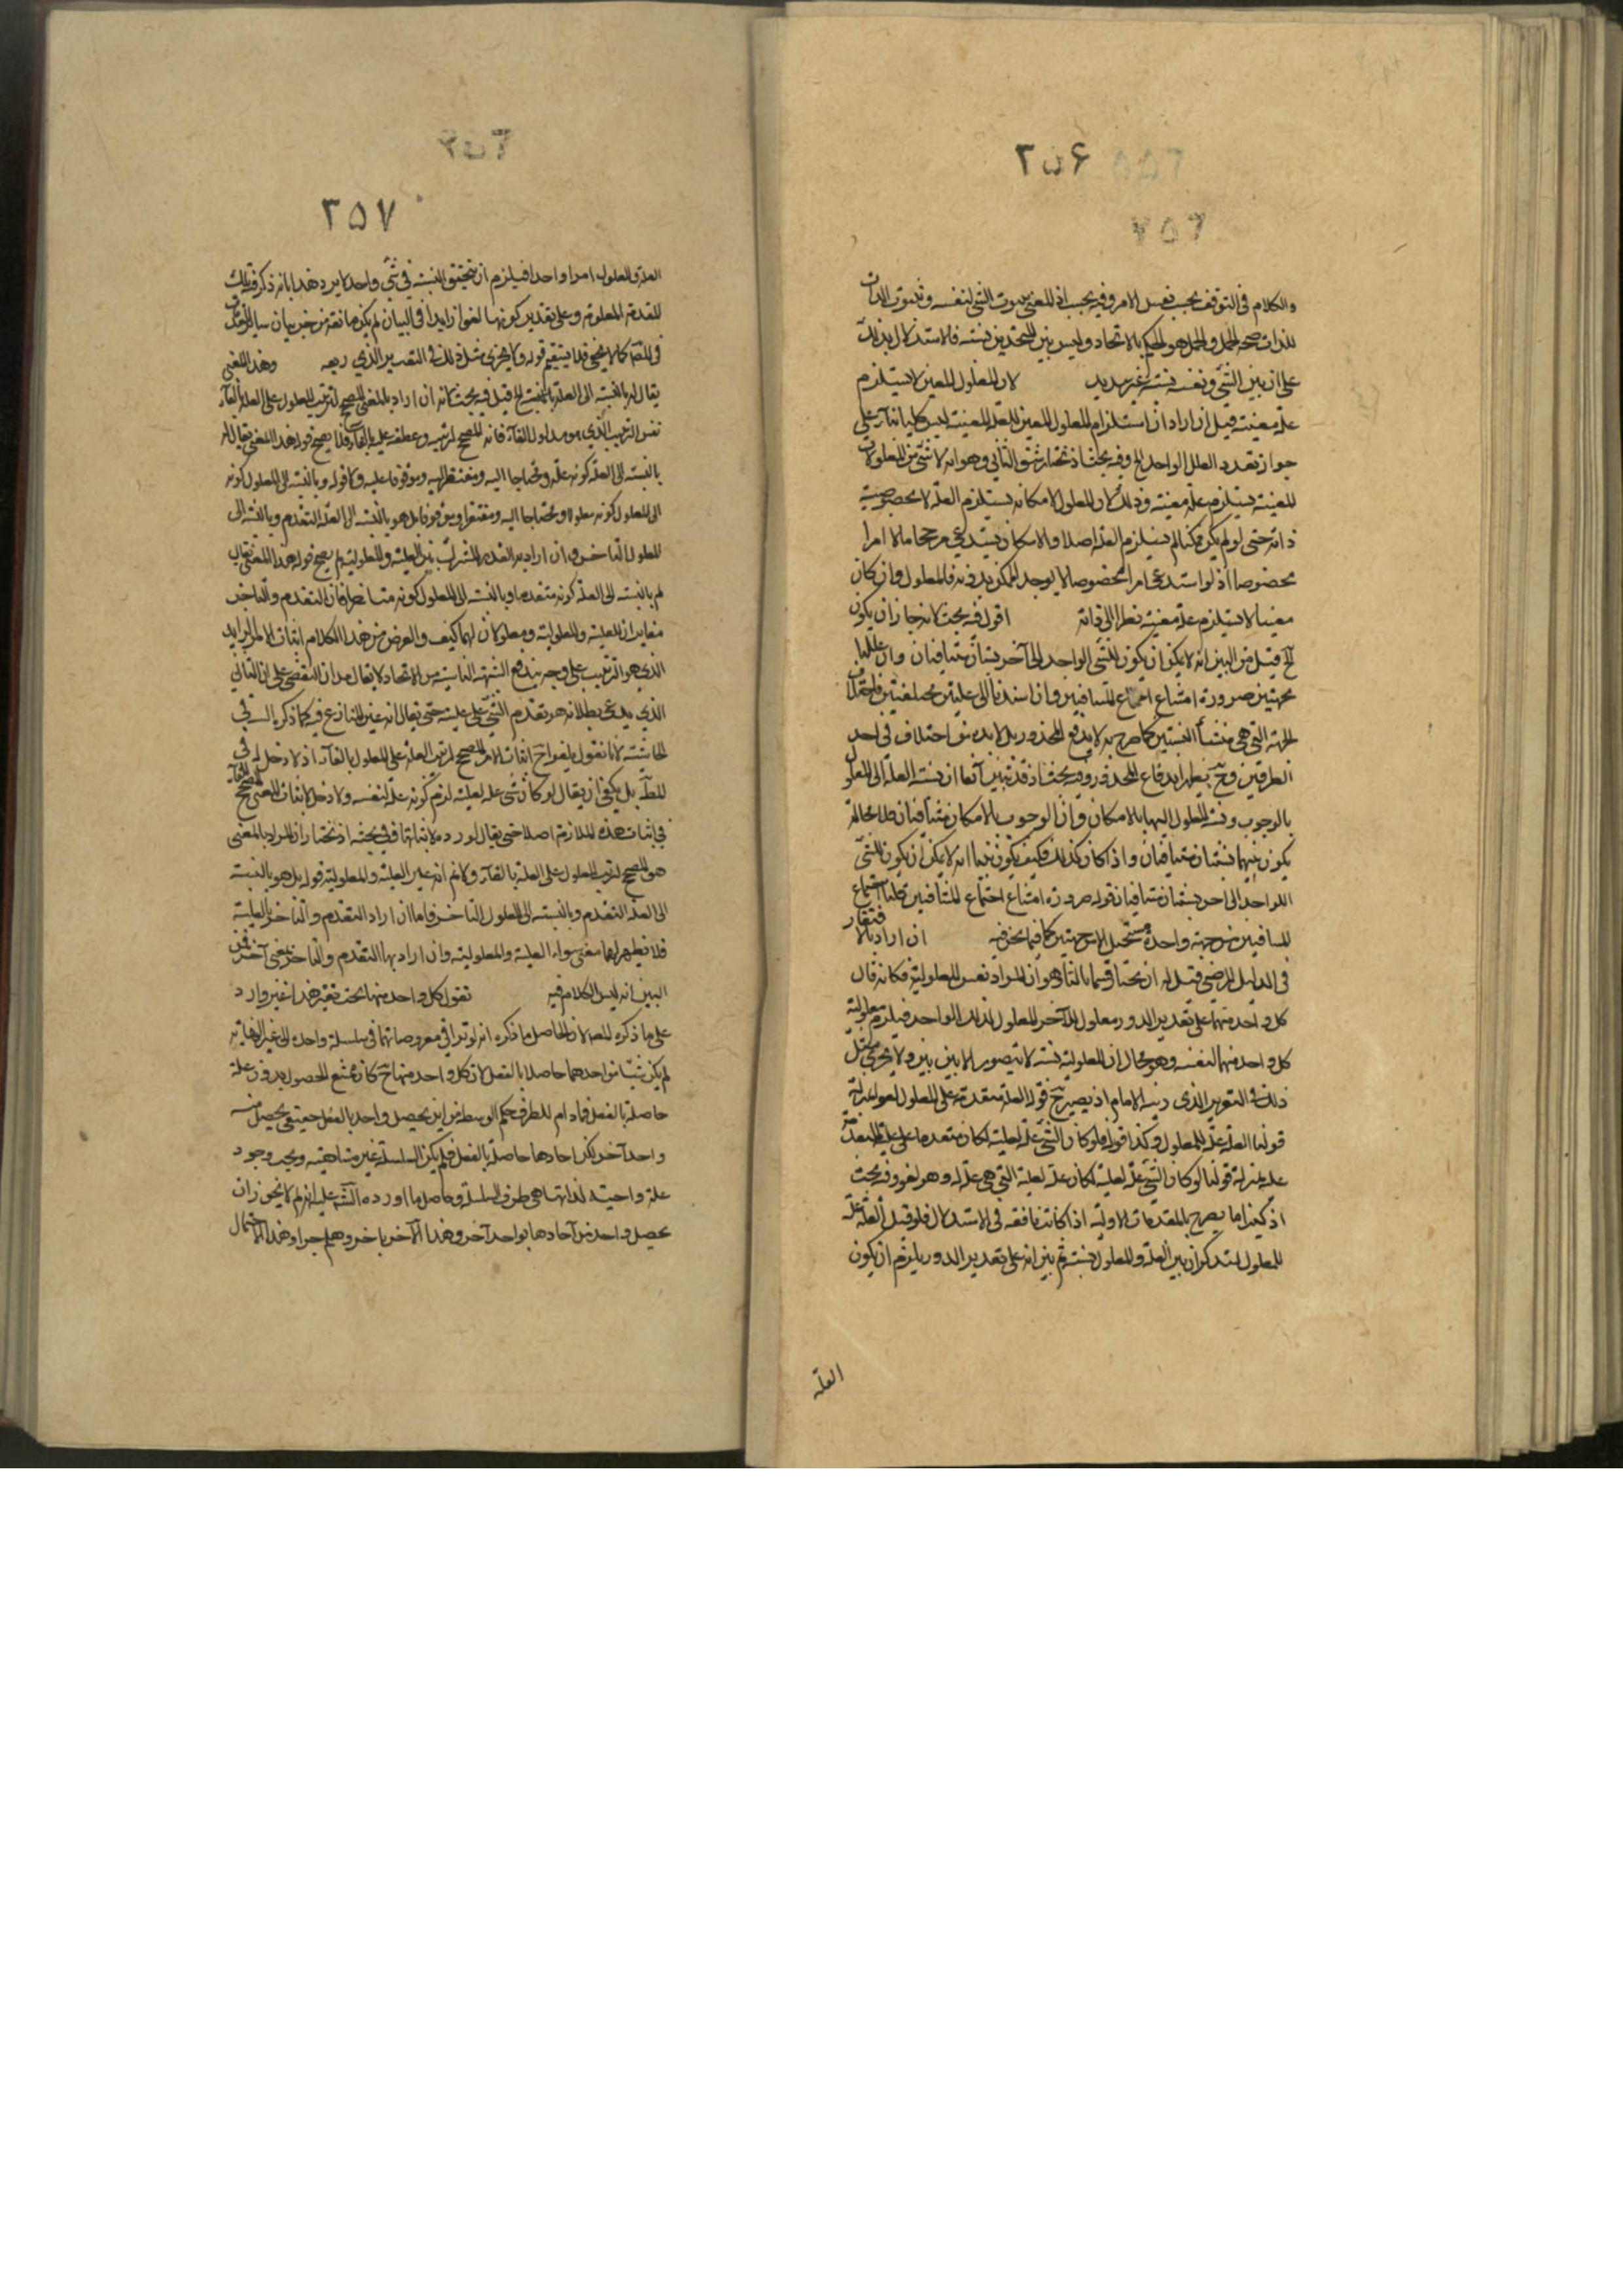 ٢٥٦
والكلام في التوقف بحسب نفس الامر وفيه بحث اذ المعنى ثبوت الشئ لنفسه وثبوت الذات
للذات صحة الحمل والحمل هو الحكم بالاتحاد وليس بين المتحدين نسبة فالاستدلال بذلك
على ان بين الشئ ونفسه نسبة غير سديد لان المعلول المعين لا يستلزم
علة معينة قيل ان اراد ان استلزام المعلول المعين للعلة المعينة ليس كليا بناء على
جواز تعدد العلل لواحد الخ وفيه بحث اذ نختار الشق الثاني وهو انه لا شئ من المعلولات
المعينة يستلزم علة معينة وذلك لان المعلول لامكانه يستلزم العلة لا بخصوصية
ذاته حتى لو لم يكن ممكنا لم يستلزم العلة اصلا والامكان يستدعي مرجحا ما لا امرا
مخصوصا اذ لو استدعى امرا مخصوصا لا يوجد الممكن بدونه فالمعلول وان كان
معينا لا يستلزم علة معينة نظرا الى ذاته اقول فيه بحث لانه جاز ان يكون
الخ قيل من البين انه لا يمكن ان يكون للشئ الواحد الى آخر نسبتان متنافيتان وان عللتا
بجهتين ضرورة امتناع اجتماع المتنافيين وان استندتا الى علتين مختلفتين فاختلاف
الجهة التي هي منشأ النسبتين كما صرح به لا يدفع المحذور بل لابد من اختلاف في احد
الطرفين وح يظهر اندفاع المحذور وفيه بحث اذ قد تبين آنفا ان نسبة العلة الى المعلول
بالوجوب ونسبة المعلول اليها بالامكان وان الوجوب والامكان متنافيان فلا محالة
يكون بينهما نسبتان متنافيتان واذا كان كذلك فكيف يكون بينا انه لا يمكن ان يكون للشئ
الواحد الى آخر نسبتان متنافيتان قوله ضرورة امتناع اجتماع المتنافيين قلنا اجتماع
المتنافيين من جهة واحدة مستحيل لا من جهتين كما فيما نحن فيه ان اراد بالافتقار
في الدليل المرضي قيل له ان نختار قسما ثالثا وهو ان المراد نفس المعلولية فكانه قال
كل واحد منهما على تقدير الدور معلول للآخر المعلول لذلك الواحد فيلزم معلولية
كل واحد منهما لنفسه وهو محال اذ المعلولية نسبة لا تتصور الا بين شيئين ولا يجري مثل
ذلك في التقرير الذي زيفه الامام اذ يصير ح قوله العلة متقدمة على المعلول لغوا بمنزلة
قولنا العلة علة للمعلول وكذا قوله فلو كان الشئ علة لعلته لكان متقدما على علته المتقدمة
عليه بمنزلة قولنا لو كان الشئ علة لعلته لكان علة لعلته التي هي علة له وهو لغو وفيه بحث
اذ كثيرا ما يصرح بالمقدمات الاولية اذا كانت نافعة في الاستدلال فلو قيل العلة علة
للمعلول لتذكر ان بين العلة والمعلول نسبة ثم بين انه على تقدير الدور يلزم ان يكون
العلة
٢٥٧
العلة والمعلول امرا واحدا فيلزم ان تتحقق النسبة في شئ واحد لا يرد هذا بانه ذكر تلك
المقدمة المعلومة وعلى تقدير كونها لغوا زايدا في البيان لم يكن مانعة من جريان ساير المقدمات
في المط كما لا يخفى فلا يستقيم قوله ولا يجري مثل ذلك في التقرير الذي زيفه وهذا المعنى
يقال له بالنسبة الى العلة بالنسبة الخ قيل فيه بحث لانه ان اراد بالمعنى المصحح لترتيب المعلول على العلة بالفاء
نفس الترتيب الذي هو مدلول الفاء فانه المصحح لترتيبه وعطفه عليه بالفاء فلا يصح قوله هذا المعنى يقال له
بالنسبة الى العلة كونه علة ومحتاجا اليه ومفتقرا اليه وموقوفا عليه ولا قوله وبالنسبة الى المعلول كونه
الى المعلول كونه معلولا ومحتاجا اليه ومفتقرا وموقوفا بل هو بالنسبة الى العلة التقدم وبالنسبة الى
المعلول التأخر وان اراد به القدر المشترك بين العلية والمعلولية لم يصح قوله هذا المعنى يقال
لم بالنسبة الى العلة كونه متقدما وبالنسبة الى المعلول كونه متأخرا فان التقدم والتأخر
مغايران للعلية والمعلولية ومعلولان لهما كيف والغرض من هذا الكلام اثبات الامر الزايد
الذي هو الترتيب على وجه يندفع الشبهة الناشية من الاتحاد لا يقال مراد ان النقض على ان التالي
الذي يدعى بطلانه هو تقدم الشئ على علته حتى يقال انه عين المتنازع فيه كما ذكره السيد في
الحاشية لانا نقول يلغو ح اثبات الامر المصحح لترتب العلة على المعلول بالفاء اذ لا دخل له في
المط بل يكفي ان يقال لو كان شئ علة لعلته لزم كونه علة لنفسه ولا دخل لاثبات المعنى المصحح للفاء
في اثبات هذه الملازمة اصلا حتى يقال اورده لاثباتها وفيه بحث اذ نختار ان المراد بالمعنى
هو المصحح لترتب المعلول على العلة بالفاء ولا نم انه غير العلية والمعلولية قوله بل هو بالنسبة
الى العلة التقدم وبالنسبة الى المعلول التأخر قلنا ان اراد التقدم والتأخر بالعلية
فلا يظهر لهما معنى سواء العلية والمعلولية وان اراد بهما التقدم والتأخر بمعنى آخر فمن
البين انه ليس الكلام فيه نقول كل واحد منها تحت نقيه هذا غير وارد
على ما ذكره المصـ لان الحاصل ما ذكره انه لو تراقى معروضاتها في سلسلة واحدة الى غير النهاية
لم يكن شئ من واحدهما حاصلا بالفعل لان كل واحد منها ح كان ممتنع الحصول بدون علة
حاصلة بالفعل فمادام للطرف حكم الوسط من اين يحصل واحد بالفعل حقيقي يحصل منه
واحد آخر لكن آحادها حاصلة بالفعل فلم يكن السلسلة غير متناهية ويجب وجود
علة واجبة لذاتها هي طرف السلسلة وحاصل ما اورده الشـ عليه انه لم لا يجوز ان
يحصل واحد من آحادها بواحد آخر وهذا الآخر بآخر وهلم جرا وهذا الاحتمال